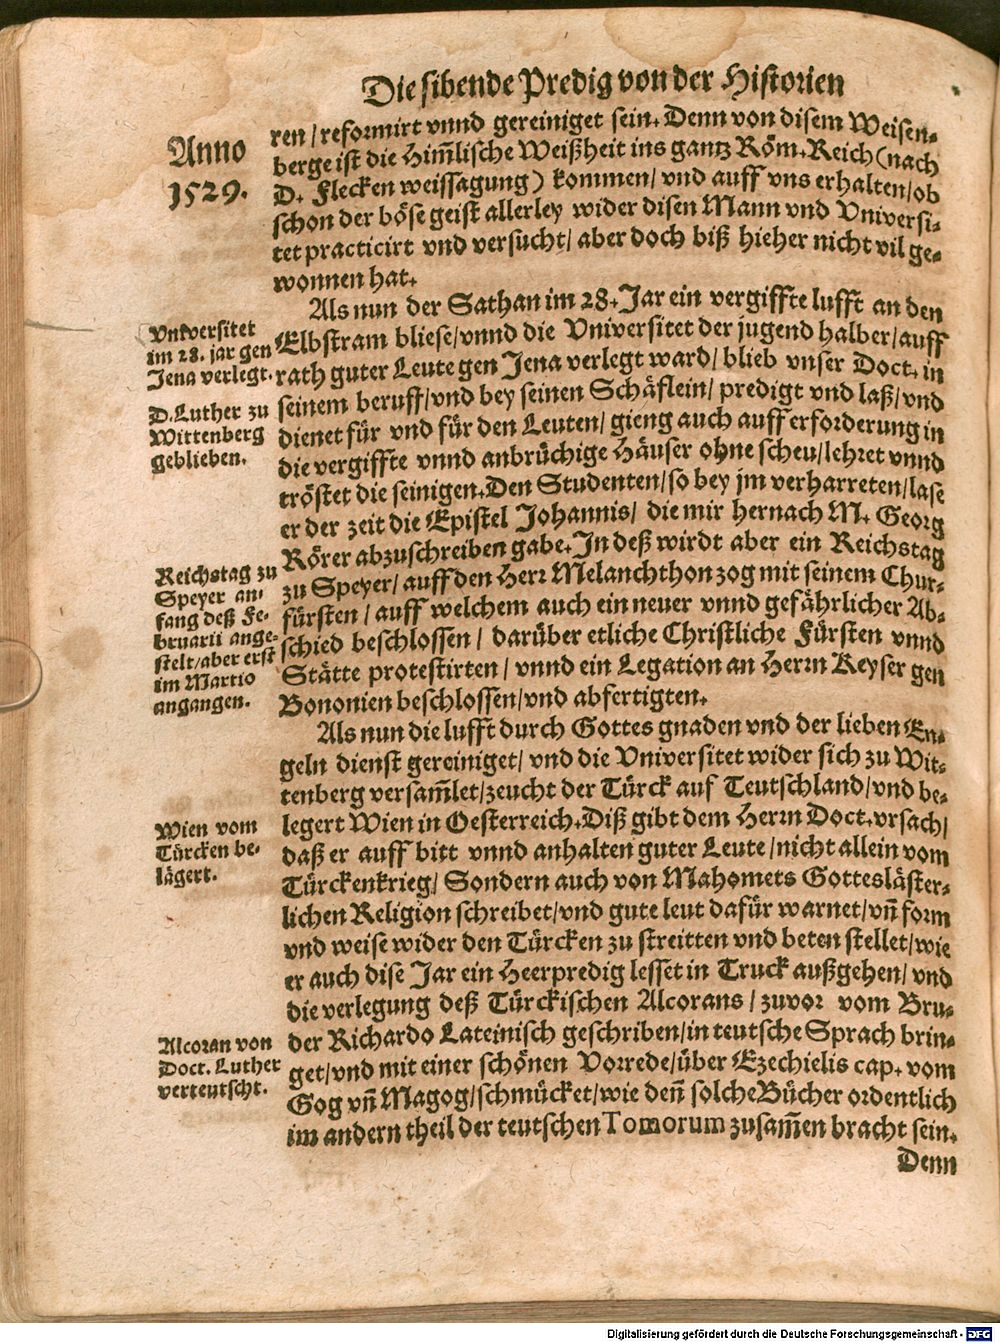 Die sibende Predig von der Historien
Anno
1529.
ren / reformirt vnnd gereiniget sein. Denn von disem Weisen-
berge ist die Him̃lische Weißheit ins gantz Röm. Reich (nach
D. Flecken weissagung) kommen / vnd auff vns erhalten / ob
schon der böse geist allerley wider disen Mann vnd Vniversi-
tet practicirt vnd versucht / aber doch biß hieher nicht vil ge-
wonnen hat.
Als nun der Sathan im 28. Jar ein vergiffte lufft an den
Elbstram bliese / vnnd die Vniversitet der jugend halber / auff
rath guter Leute gen Jena verlegt ward / blieb vnser Doct. in
seinem beruff / vnd bey seinen Schäflein / predigt vnd laß / vnd
dienet für vnd für den Leuten / gieng auch auff erforderung in
die vergiffte vnnd anbrüchige Häuser ohne scheu / lehret vnnd
tröstet die seinigen. Den Studenten / so bey jm verharreten / lase
er der zeit die Epistel Johannis / die mir hernach M. Georg
Rörer abzuschreiben gabe. In deß wirdt aber ein Reichstag
zu Speyer / auff den Herr Melanchthon zog mit seinem Chur-
fürsten / auff welchem auch ein neuer vnnd gefährlicher Ab-
schied beschlossen / darüber etliche Christliche Fürsten vnnd
Stätte protestirten / vnnd ein Legation an Herrn Keyser gen
Bononien beschlossen / vnd abfertigten.
Vniversitet
im 28. jar gen
Jena verlegt.
D. Luther zu
Wittenberg
geblieben.
Reichstag zu
Speyer an-
fang deß Fe-
bruarii ange-
stelt / aber erst
im Martio
angangen.
Als nun die lufft durch Gottes gnaden vnd der lieben En-
geln dienst gereiniget / vnd die Vniversitet wider sich zu Wit-
tenberg versam̃let / zeucht der Türck auf Teutschland / vnd be-
legert Wien in Oesterreich. Diß gibt dem Herrn Doct. vrsach /
daß er auff bitt vnnd anhalten guter Leute / nicht allein vom
Türckenkrieg / Sondern auch von Mahomets Gottesläster-
lichen Religion schreibet / vnd gute leut dafür warnet / vñ form
vnd weise wider den Türcken zu streitten vnd beten stellet / wie
er auch dise Jar ein Heerpredig lesset in Truck außgehen / vnd
die verlegung deß Türckischen Alcorans / zuvor vom Bru-
der Richardo Lateinisch geschriben / in teutsche Sprach brin-
get / vnd mit einer schönen Vorrede / über Ezechielis cap. vom
Gog vñ Magog / schmücket / wie deñ solche Bücher ordentlich
im andern theil der teutschen Tomorum zusam̃en bracht sein.
Wien vom
Türcken be-
lägert.
Alcoran von
Doct. Luther
verteutscht.
Denn
Digitalisierung gefördert durch die Deutsche Forschungsgemeinschaft - DFG